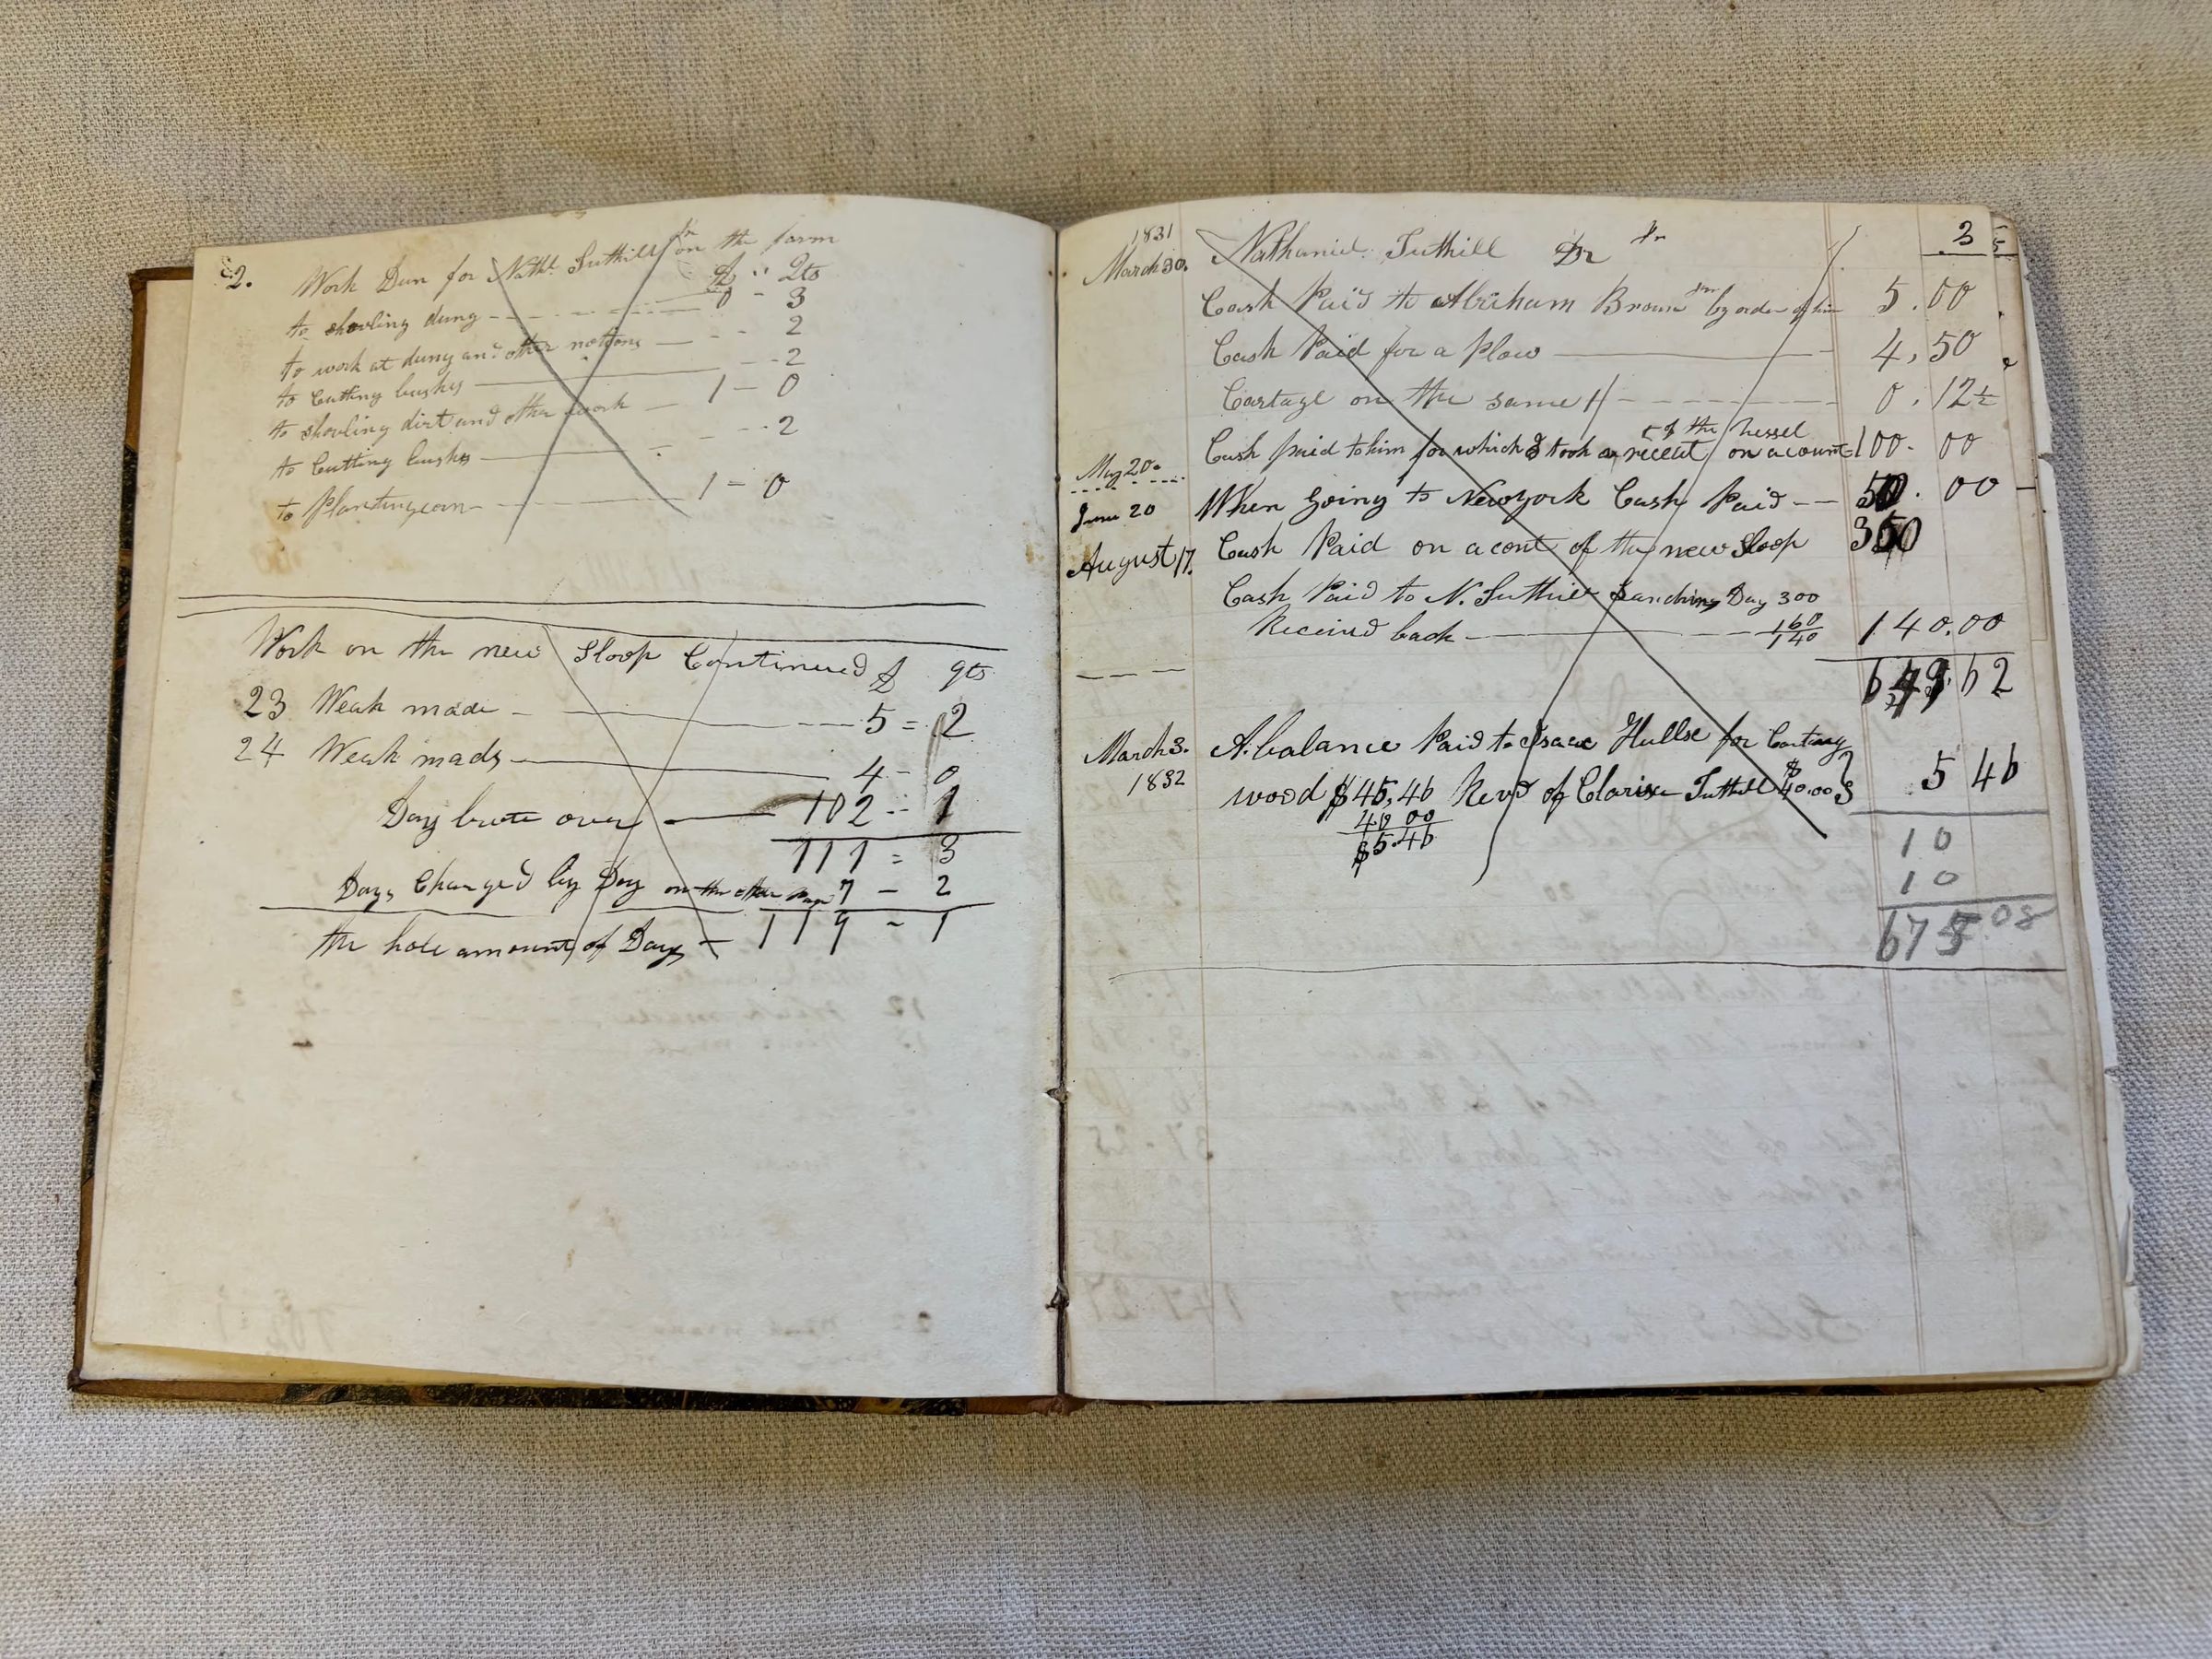 2. Work Dun for Nathl. Tuthill Jr on the farm
D qts
to shovling dung 0 - 3
to work at dung and other notions - 2
to Cutting bushes - 2
to shovling dirt and other work 1 - 0
to Cutting bushes - 2
to Planting corn 1 - 0
Work on the new Sloop Continued D qts
23 Weak made 5 = 2
24 Weak made 4 - 0
Days brote over 102 - 1
111 = 3
Days Changed by Day on the other page 7 - 2
the hole amount of Days 119 - 1
3
1831
March 30. Nathaniel Tuthill Jr Dr
Cash Paid to Abriham Brown Jr by order of him 5.00
Cash Paid for a Plow 4,50
Cartage on the same 0.12½
of the Vessel
May 20 Cash paid to him for which I took a receit on acount 100.00
June 20 When Going to Newyork Cash Paid 50.00
August 17. Cash Paid on acont of the new Sloop 350
Cash Paid to N. Tuthill Lanching Day 300
160
Received back 140 140.00
649 62
March 3. A balance Paid to Isaac Hullse for Carting
1832 wood $45,46 Recvd of Clarisa Tuthill $40.00 5 46
40 00
$5.46
10
10
675.08